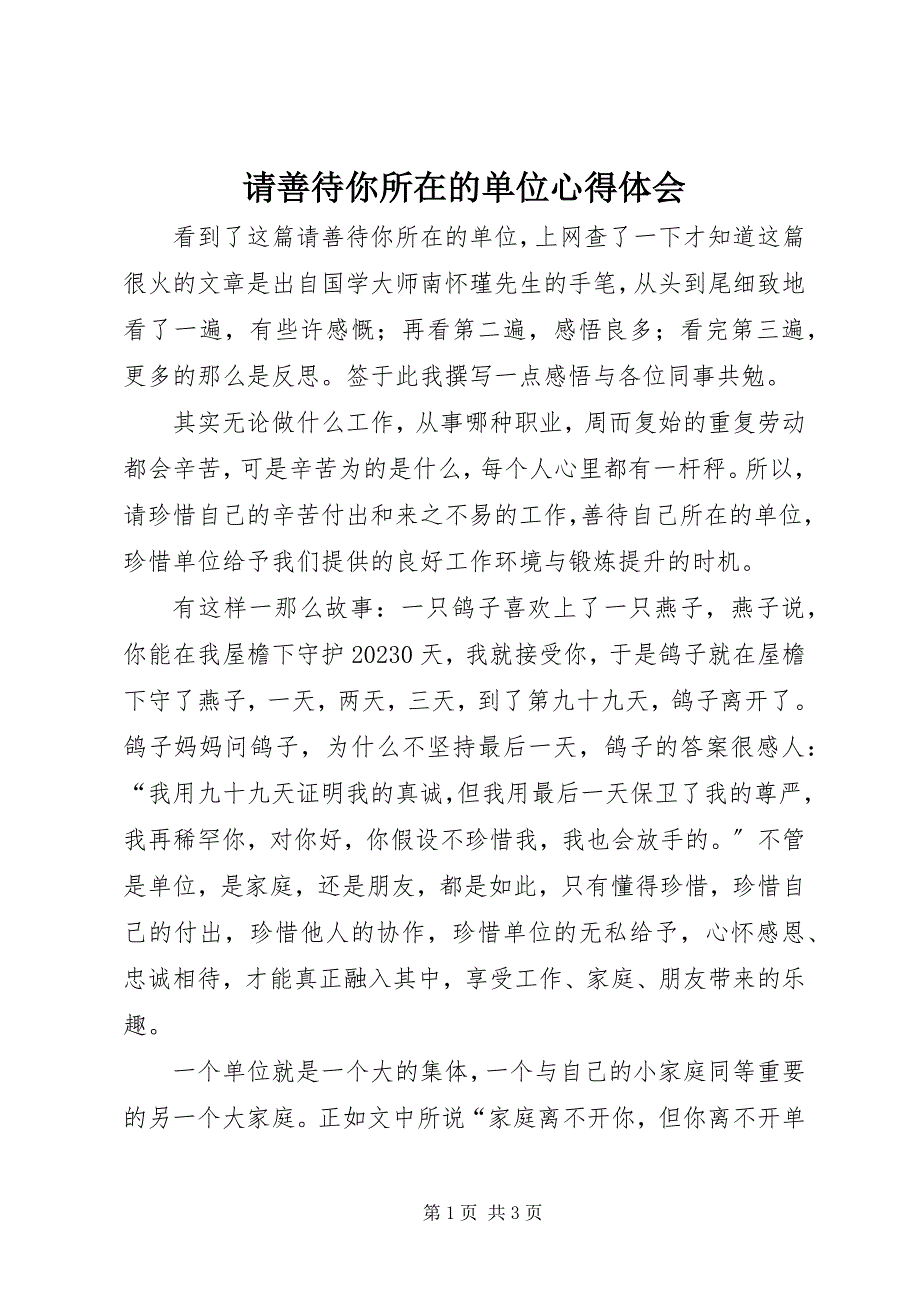 请善待你所在的单位心得体会
看到了这篇请善待你所在的单位，上网查了一下才知道这篇
很火的文章是出自国学大师南怀瑾先生的手笔，从头到尾细致地
看了一遍，有些许感慨；再看第二遍，感悟良多；看完第三遍，
更多的那么是反思。签于此我撰写一点感悟与各位同事共勉。
其实无论做什么工作，从事哪种职业，周而复始的重复劳动
都会辛苦，可是辛苦为的是什么，每个人心里都有一杆秤。所以，
请珍惜自己的辛苦付出和来之不易的工作，善待自己所在的单位，
珍惜单位给予我们提供的良好工作环境与锻炼提升的时机。
有这样一那么故事：一只鸽子喜欢上了一只燕子，燕子说，
你能在我屋檐下守护 20230 天，我就接受你，于是鸽子就在屋檐
下守了燕子，一天，两天，三天，到了第九十九天，鸽子离开了。
鸽子妈妈问鸽子，为什么不坚持最后一天，鸽子的答案很感人：
“我用九十九天证明我的真诚，但我用最后一天保卫了我的尊严，
我再稀罕你，对你好，你假设不珍惜我，我也会放手的。〞不管
是单位，是家庭，还是朋友，都是如此，只有懂得珍惜，珍惜自
己的付出，珍惜他人的协作，珍惜单位的无私给予，心怀感恩、
忠诚相待，才能真正融入其中，享受工作、家庭、朋友带来的乐
趣。
一个单位就是一个大的集体，一个与自己的小家庭同等重要
的另一个大家庭。正如文中所说“家庭离不开你，但你离不开单
第 1 页 共 3 页